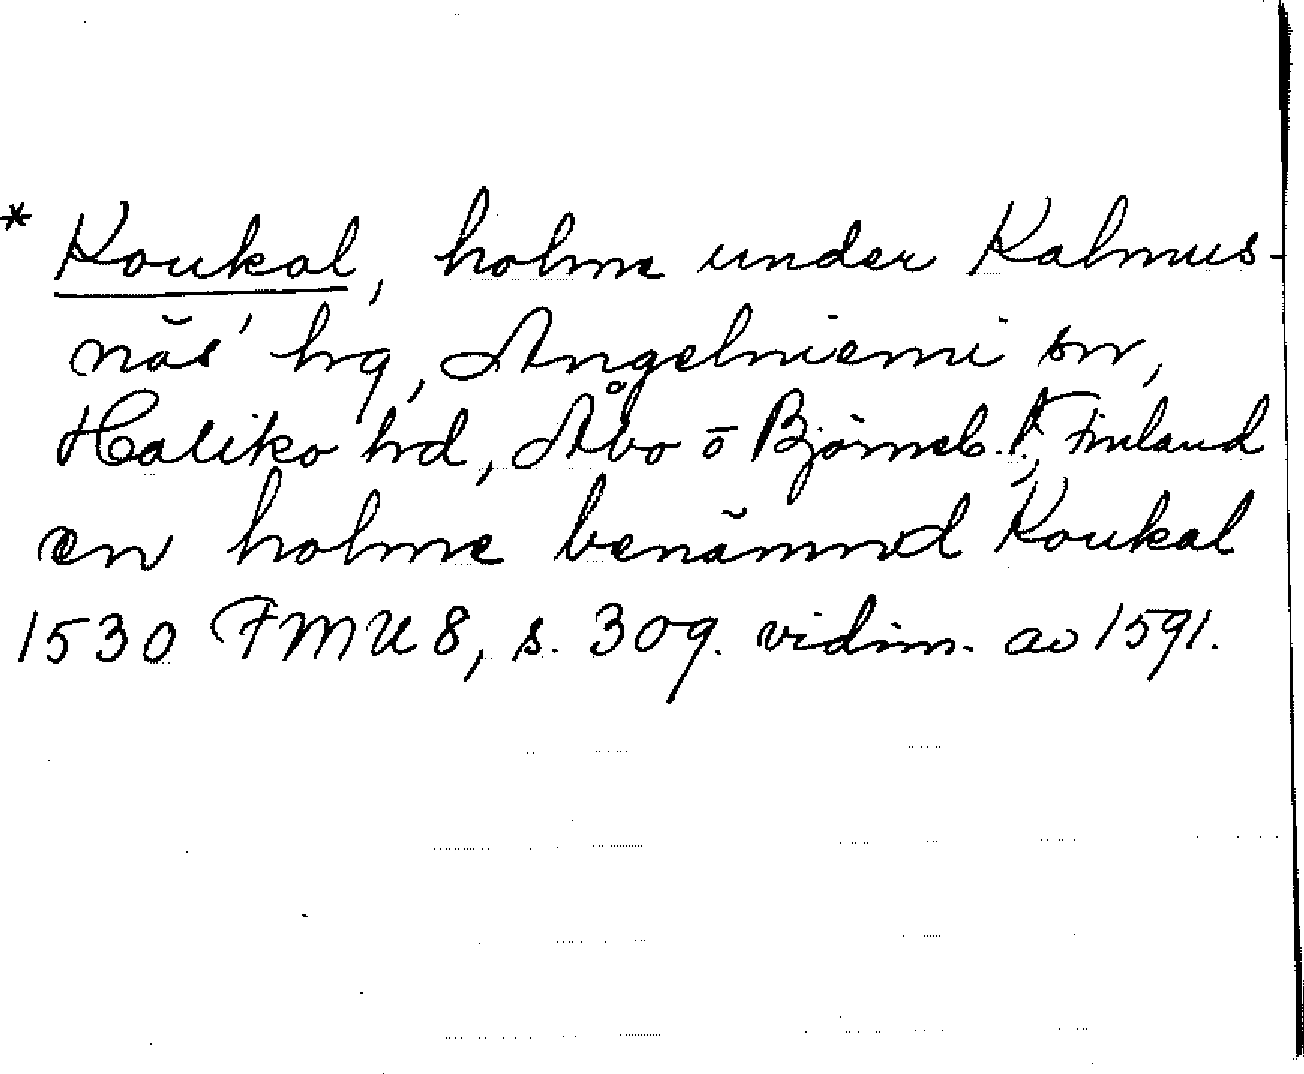 * Koukal, holme under Kalmus-
näs' hg, Angelniemi sn,
Haliko hd, Åbo o Björneb. l., Finland
en holme benämnd Koukal
1530 FMU 8, s. 309. vidim. av 1591.